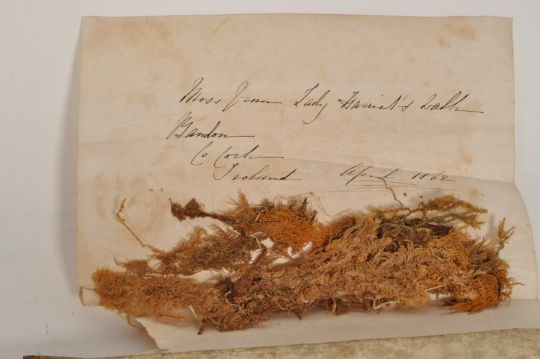 Moss from Lady Harriet's bath
Bandon
Co Cork
Ireland April 1862